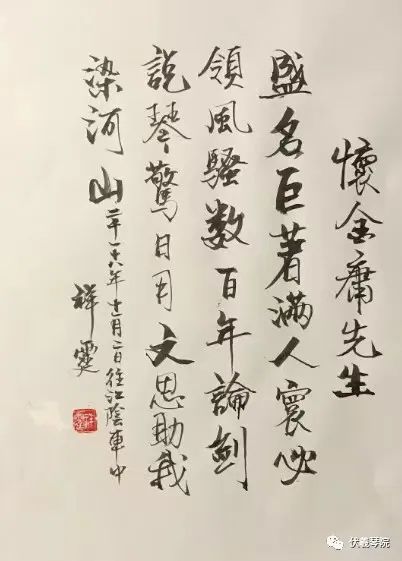 懷金庸先生
盛名巨著滿人寰必
領風騷数百年論劍
說琴驚日月文思助我
染河山
二千一十八年十一月二日往江陰車中
祥霆
伏羲琴院